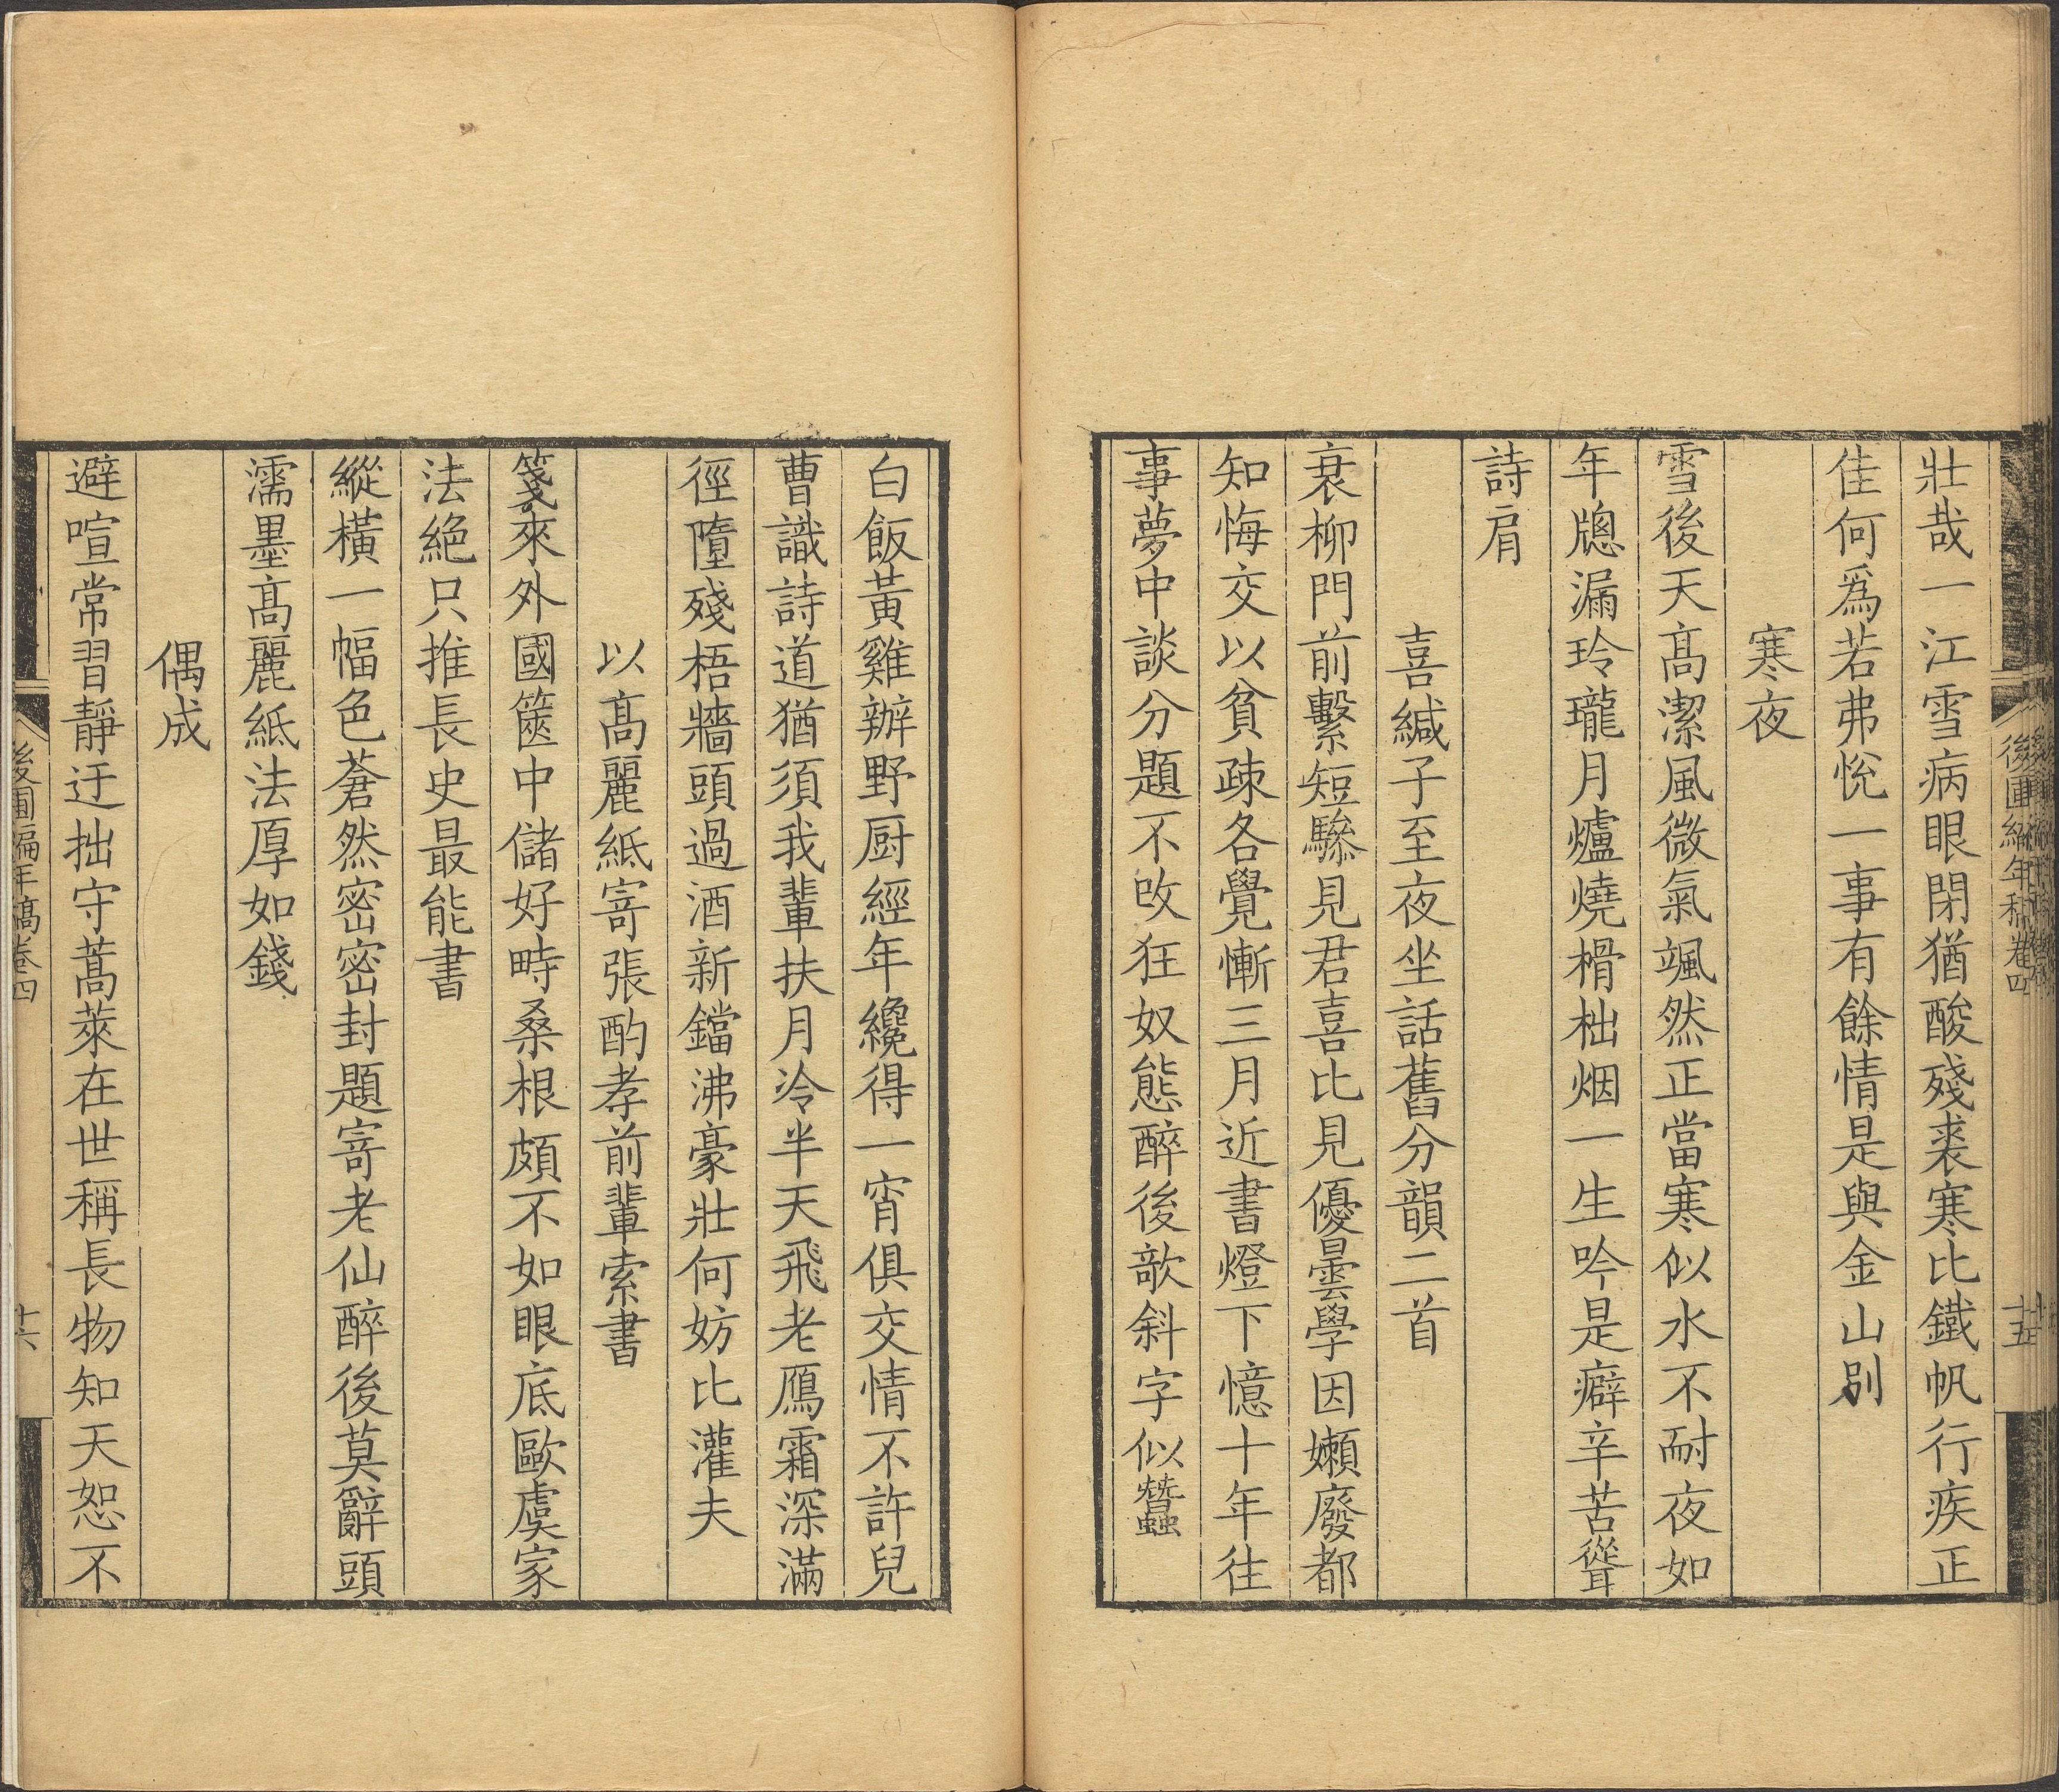 後圃編年稿卷四
十五
壯哉一江雪病眼閉猶酸殘裘寒比鐵帆行疾正
佳何爲若弗悅一事有餘情是與金山別
寒夜
雪後天髙潔風微氣颯然正當寒似水不耐夜如
年牕漏玲瓏月爐燒榾柮烟一生吟是癖辛苦聳
詩肩
喜緘子至夜坐話舊分韻二首
衰柳門前繫短驂見君喜比見優曇學因嬾廢都
知悔交以貧疎各覺慚三月近書燈下憶十年往
事夢中談分題不改狂奴態醉後歌斜字似蠶
白飯黃雞辦野厨經年纔得一宵俱交情不許兒
曹識詩道猶須我輩扶月冷半天飛老鴈霜深滿
徑墮殘梧牆頭過酒新鐺沸豪壯何妨比灌夫
以髙麗紙寄張酌孝前輩索書
箋來外國篋中儲好時桑根頗不如眼底歐虞家
法絕只推長史最能書
縱橫一幅色蒼然密密封題寄老仙醉後莫辭頭
濡墨髙麗紙法厚如錢
偶成
避喧常習靜迂拙守蒿萊在世稱長物知天恕不
後圃編年稿卷四
十六